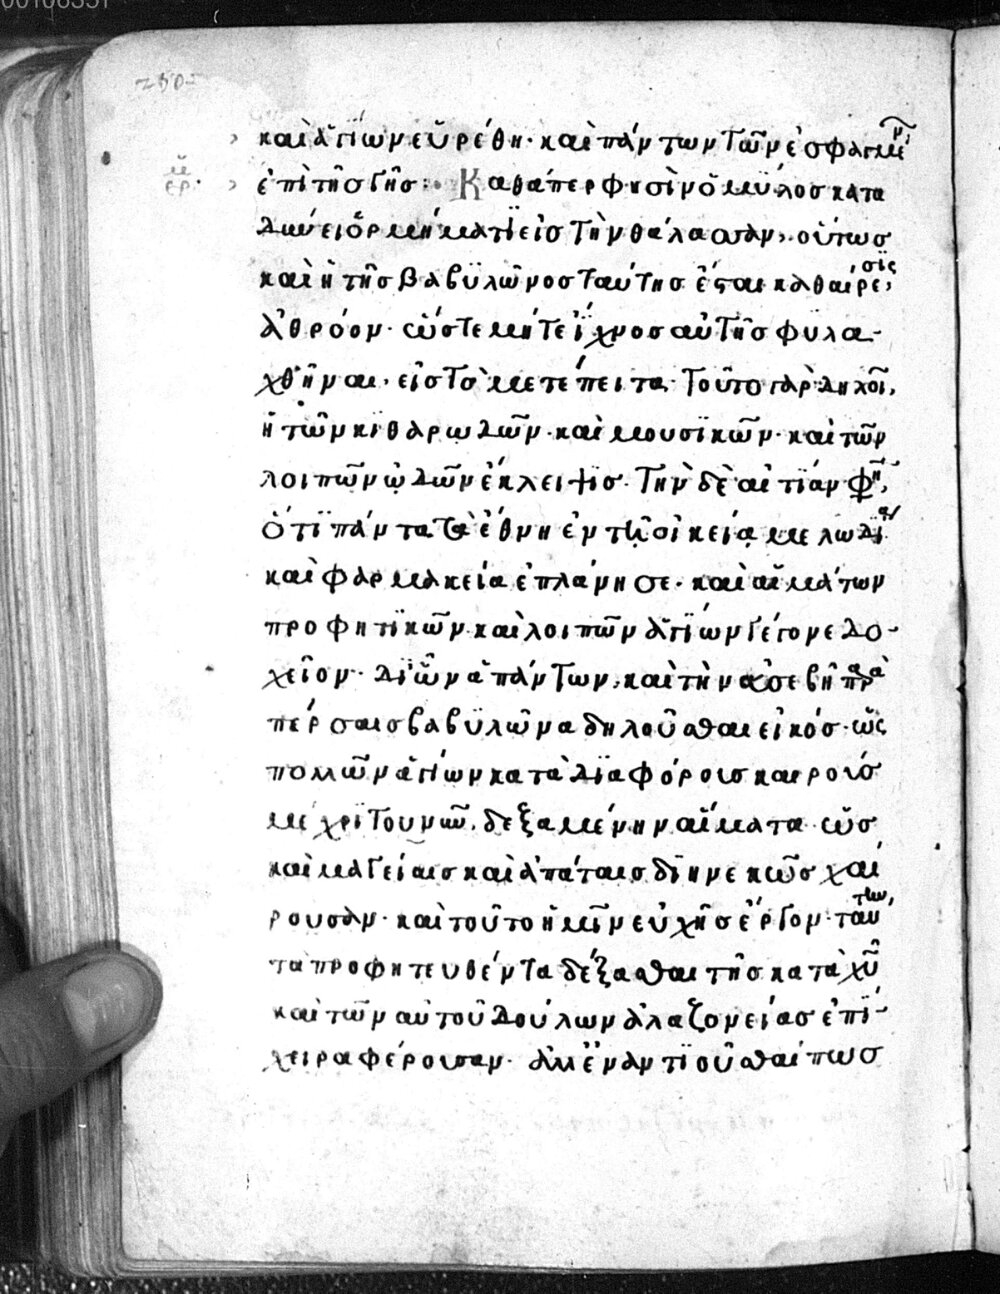 καὶ ἁγίων εὑρέθη· καὶ πάντων τῶν ἐσφαγμένων
ἐπὶ τῆς γῆς: Καθάπερ φησὶν ὁ μύλος κατα
δύνει ὁρμήματι εἰς τὴν θάλασσαν, οὕτως
καὶ ἡ τῆς βαβυλῶνος ταύτης ἔσται καθαίρεσις,
ἀθρόον· ὥστε μήτε ἴχνος αὐτῆς φυλα-
χθῆναι, εἰς τὸ μετέπειτα· τοῦτο γὰρ δηλοῖ,
ἡ τῶν κιθαρωδῶν· καὶ μουσικῶν· καὶ τῶν
λοιπῶν ᾠδῶν ἔκλειψις· Τὴν δὲ αἰτίαν φη,
ὅτι πάντα τὰ ἔθνη ἐν τῇ οἰκείᾳ μελωδίᾳ
καὶ φαρμακεία ἐπλάνησε· καὶ αἱμάτων
προφητικῶν καὶ λοιπῶν ἁγίων γέγονε δο-
χεῖον· δι ὧν ἁπάντων, καὶ τὴν ἀσεβῆ παρὰ
πέρσαις βαβυλῶνα δηλοῦσθαι εἰκός· ὡς
πολλῶν ἁγίων κατὰ διαφόροις καιροῖς
μέχρι τοῦ νῦν, δεξαμένην αἵματα· ὡς
καὶ μαγείαις καὶ ἀπάταις διηνεκῶς χαί
ρουσαν· καὶ τοῦτο ἡμῖν εὐχῆς ἔργον· ταύτην,
τὰ προφητευθέντα δέξασθαι τῆς κατὰ χῦ
καὶ τῶν αὐτοῦ δούλων ἀλαζονείας ἐπί-
χειρα φέρουσαν· ἀλλ ἐναντιοῦσθαί πως